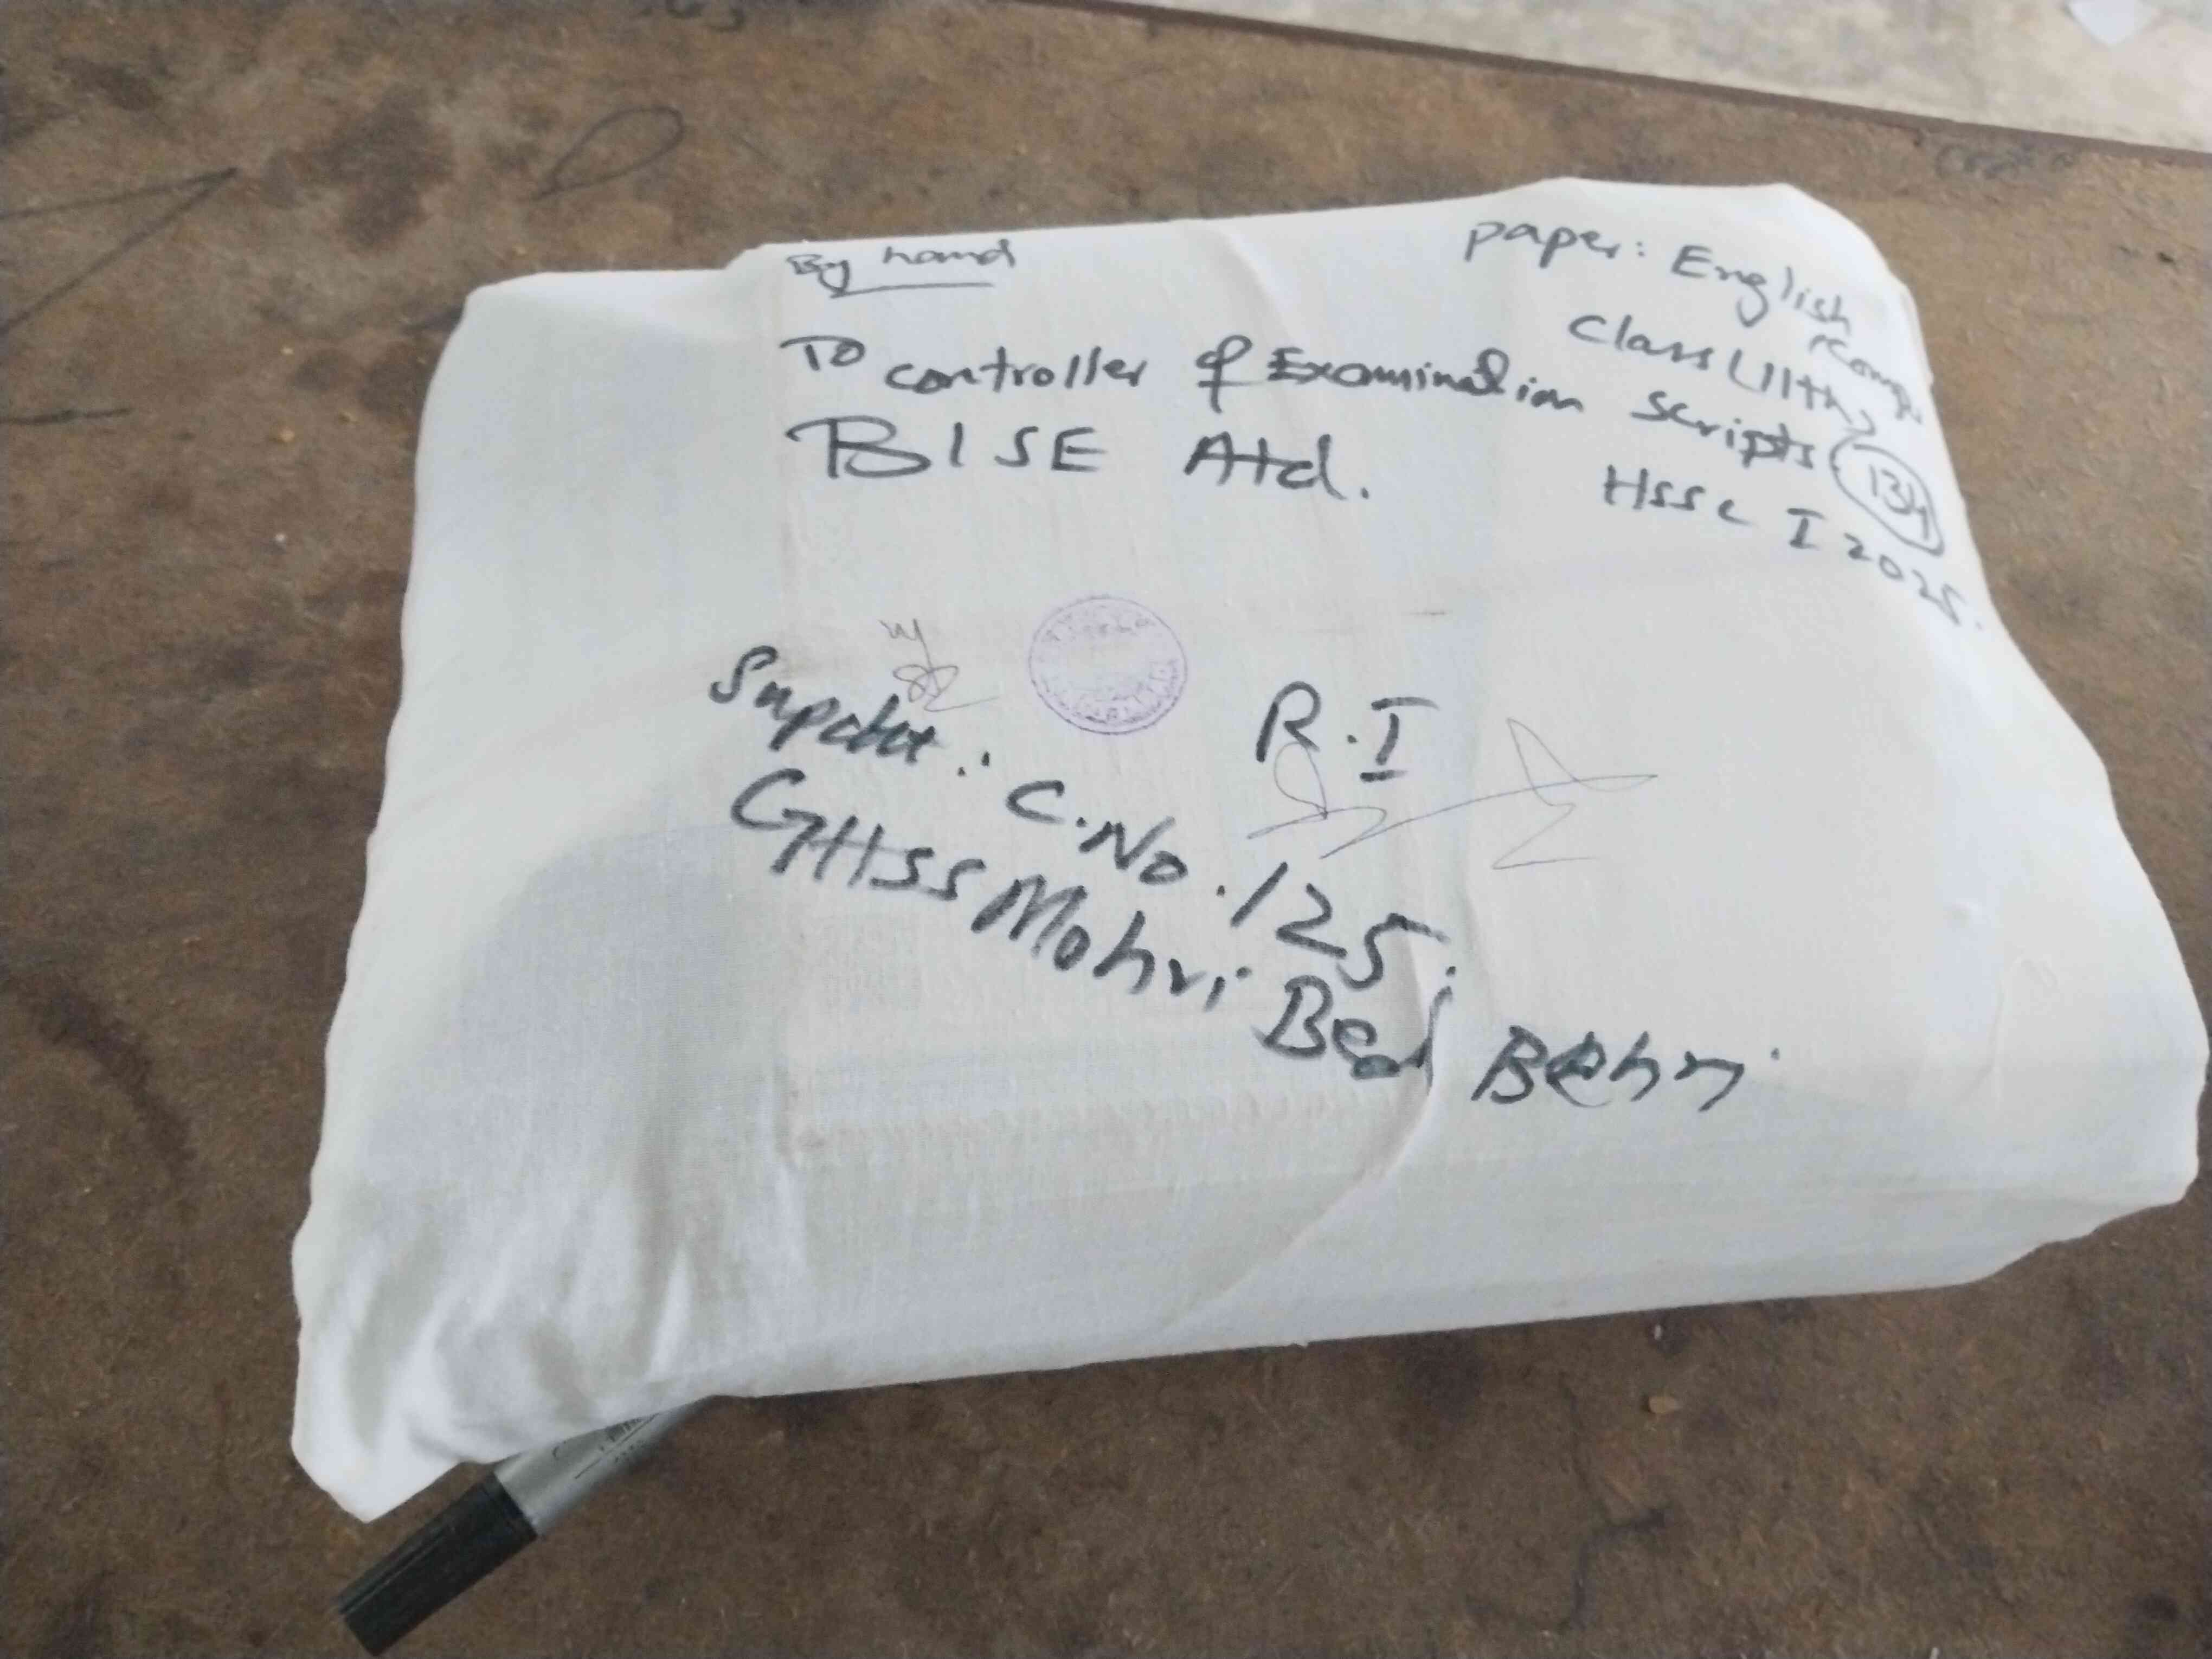 By hand
paper: English
(Comp.
Class (11th)
To controller of Examination
scripts 134
BISE Atd.
HSSC I 2025.
R.I
Supdtt.
C.No.125.
GHSS Mohri Bed Behn